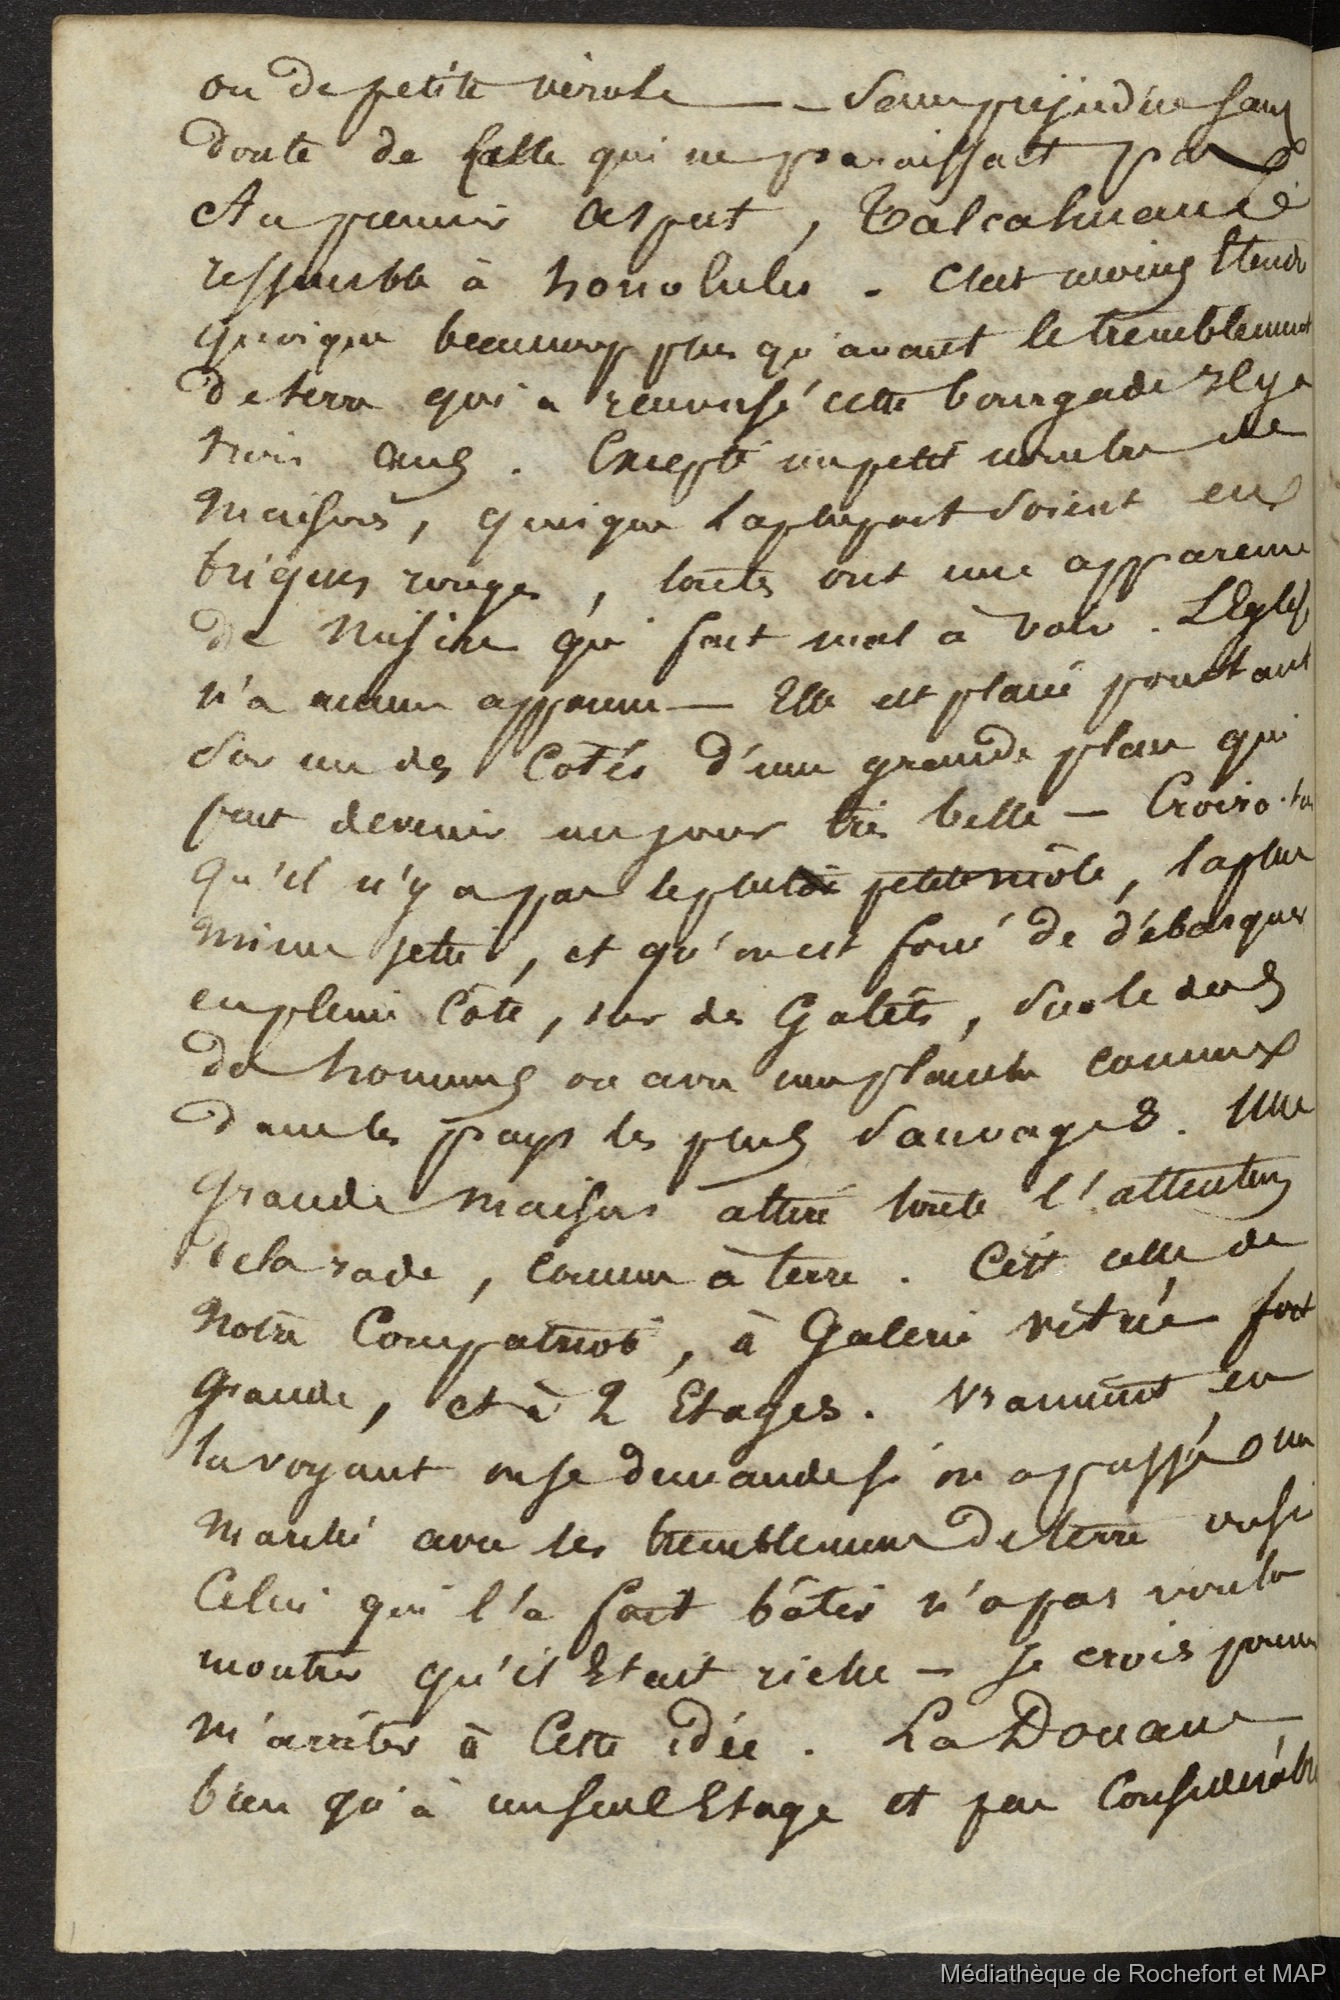 ou de petite vérole — Sans préjudice sans
doute de celle qui ne paraissait pas
Au premier aspect, Talcahuano
ressemble à honolulu. C'est moins Etendu
quoique beaucoup plus qu'avant le tremblement
de terre qui a renversé cette bourgade Il y a
trois ans. Excepté un petit nombre de
Maisons, quoique la plupart Soient en
briques rouges, toutes ont une apparence
de Misère qui fait mal à voir. L'Eglise
n'a aucune apparence — Elle est placée pourtant
Sur un des Cotés d'une grande place qui
peut devenir un jour très belle — Croiro-tu
qu'il n'y a pas le plus petit môle, la plus
mince jetée, et qu'on est forcé de débarquer
en pleine Côte, sur des Galets, Sur le dos
de hommes ou avec une planche comme
dans les pays les plus Sauvages. Une
Grande Maison attire toute l'attention
de la rade, comme à terre. C'est celle de
Notre Compatriote, à Galerie vitrée fort
grande, et à 2 Etages. Vraiment en
la voyant on se demande si on a passé un
Marché avec les tremblemens de terre ou si
Celui qui l'a fait bâtir n'a pas voulu
montrer qu'il Etait riche — Je crois pouvoir
m'arrêter à Cette idée. La Douane
bien qu'à un seul Etage et peu Considérable
Médiathèque de Rochefort et MAP